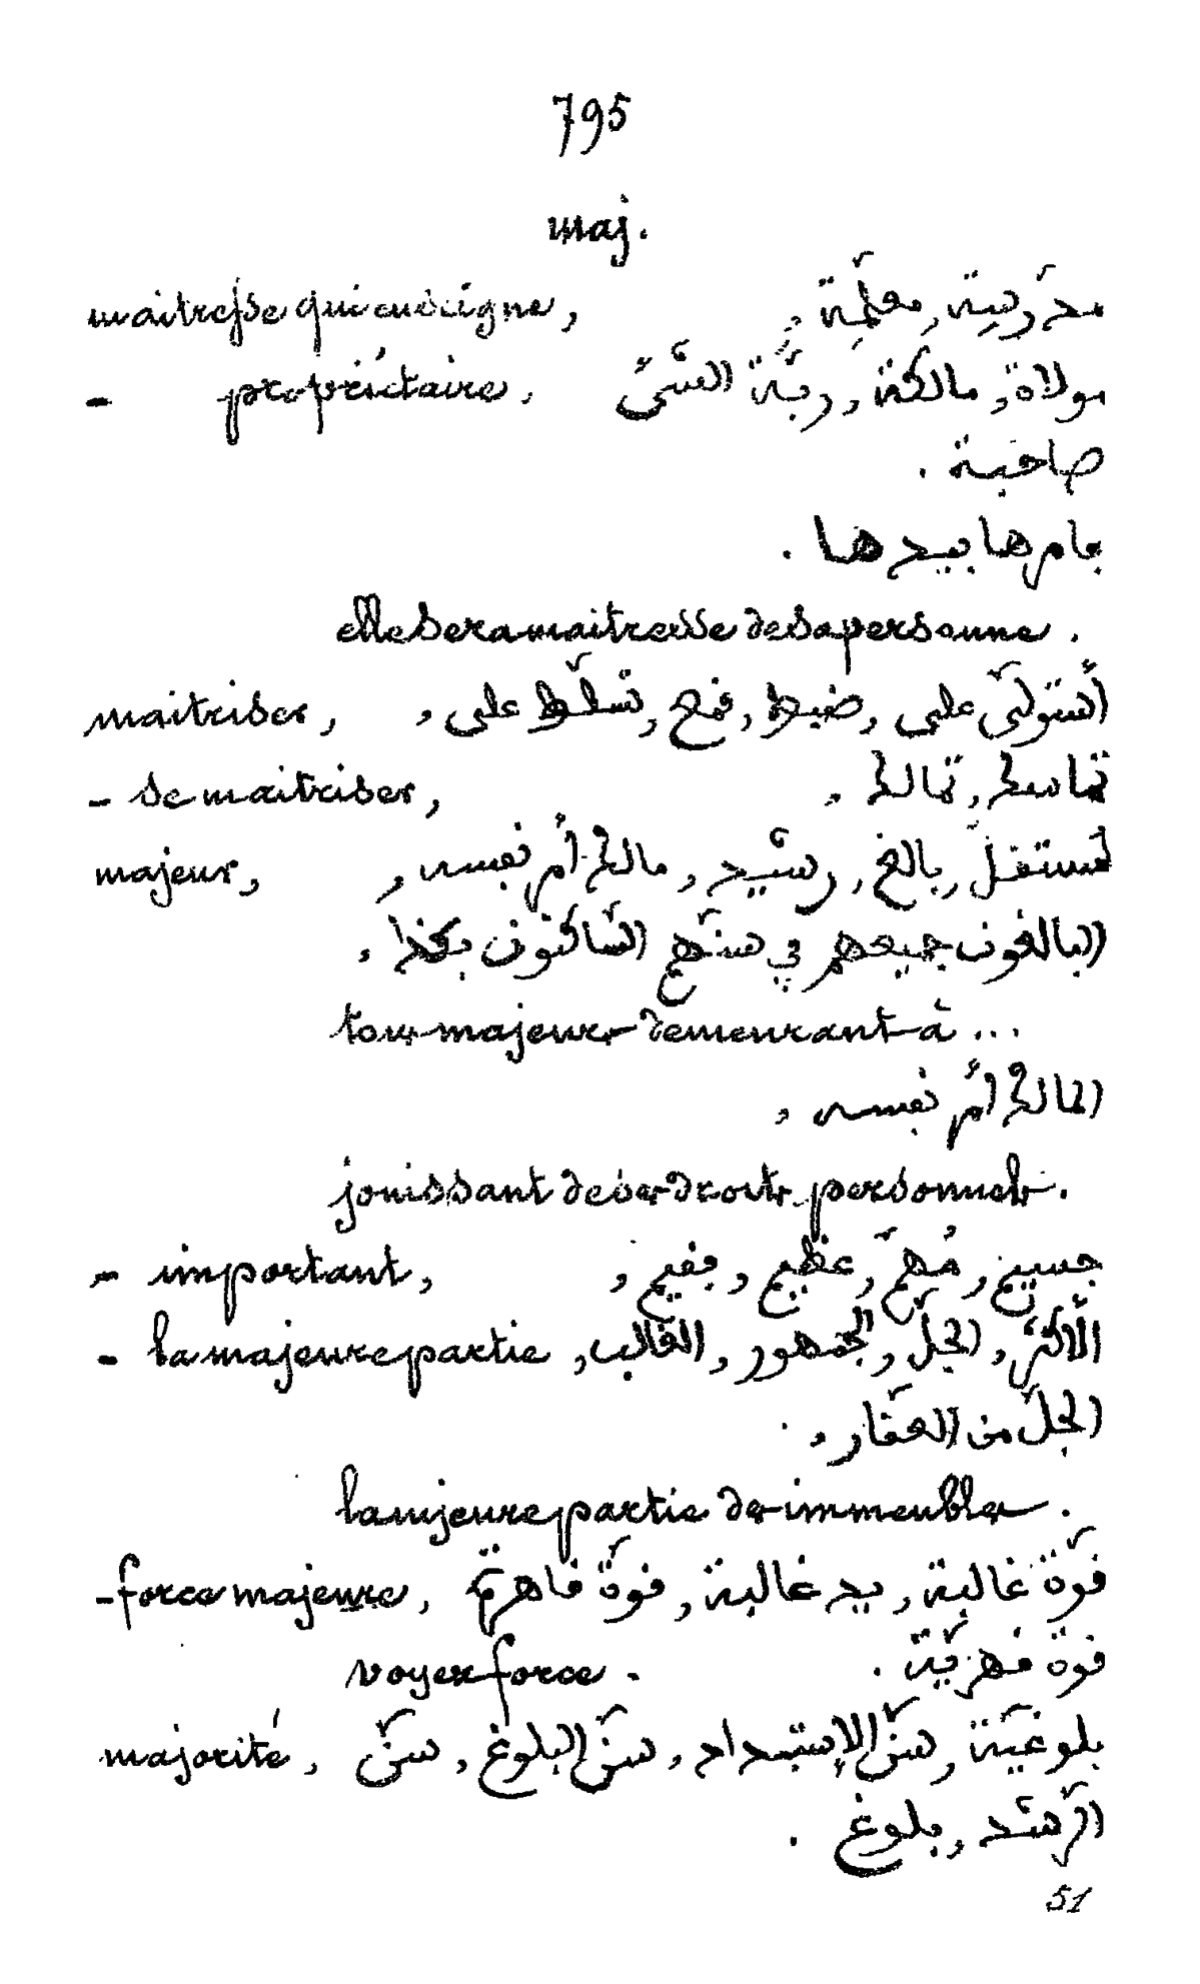 795
maj.
maitresse qui enseigne, مدرسة, معلمة,
- propriétaire, مولاة, مالكة, ربّة الشئ
صاحبة.
أمرها بيدها.
elle sera maitresse de sa personne.
maitriser, أستولى على, ضبط, قمع, تسلّط على,
- se maitriser, تماسك, تمالك,
majeur, مستقلّ, بالغ, رشيد, مالك أمر نفسه,
البالغون جميعهم في سنهم السّاكنون بكذا,
tous majeurs demeurant à ...
المالك أمر نفسه,
jouissant de ses droits personnels.
- important, جسيم, مُهمّ, عظيم, فخيم,
- la majeure partie, الأكثر, الجلّ, الجمهور, الغالب,
الجلّ من العقار,
la majeure partie des immeubles.
- force majeure, قوّة غالبة, يد غالبة, قوّة قاهرة
voyez force. قوة قهريّة.
majorité, بلوغيّة, سنّ الإستبداد, سنّ البلوغ, سنّ
الرّشد, بلوغ.
51